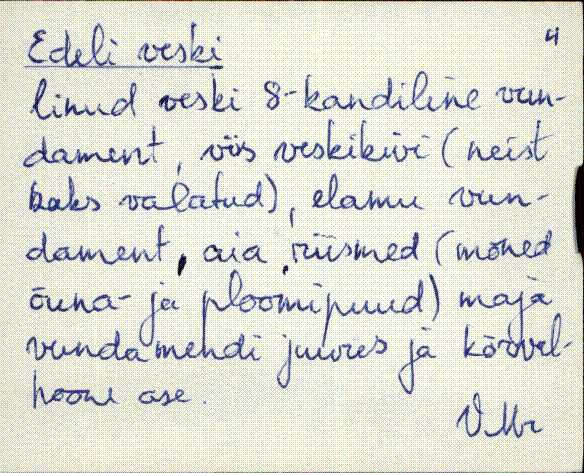 4
Edeli veski
linud veski 8-kandiline vun-
dament, viis veskikivi (neist
kaks valatud), elamu vun-
dament, aia riismed (mõned
õuna- ja ploomipuud) maja
vundamendi juures ja kõrvel-
hoone ase.